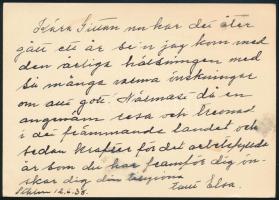 Kära Littan nu har det åter
gått ett år sen jag kom med
den årliga hälsningen med
så många varma önskningar
om allt gott. Närmast då en
angenäm resa och levnad
i det främmande landet och
sedan krafter för det arbetsfyllda
år som du har framför dig ön-
skar dig din tillgivna
12.6.38. Tant Elsa.